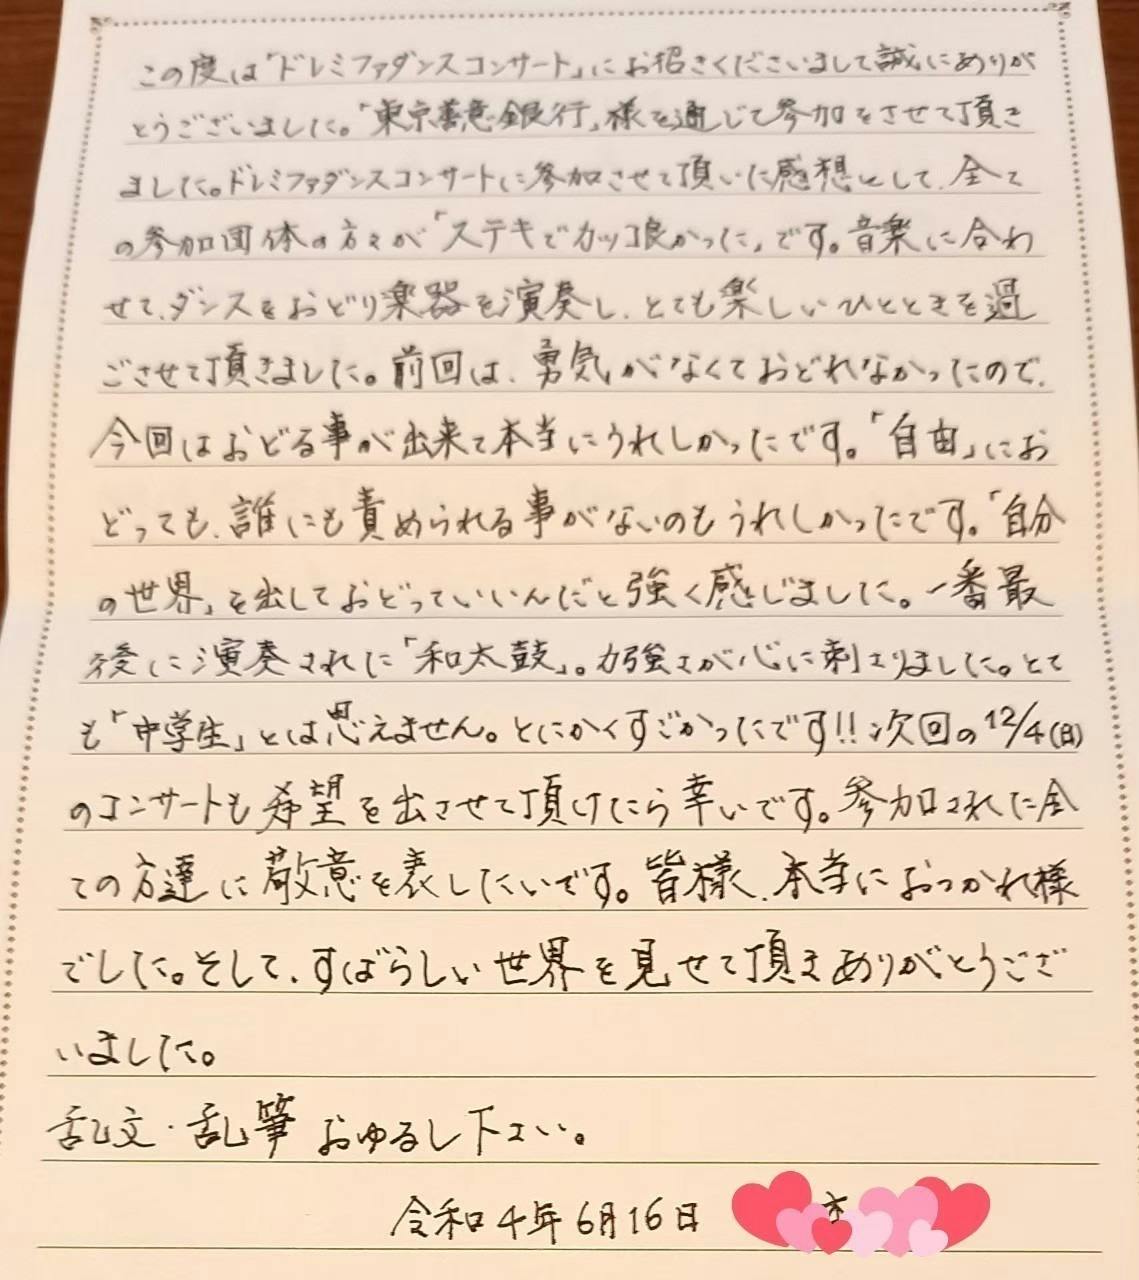 この度は「ドレミファダンスコンサート」にお招きくださいまして誠にありが
とうございました。「東京善意銀行」様を通じて参加をさせて頂き
ました。ドレミファダンスコンサートに参加させて頂いた感想として、全て
の参加団体の方々が「ステキでカッコ良かった」です。音楽に合わ
せて、ダンスをおどり楽器を演奏し、とても楽しいひとときを過
ごさせて頂きました。前回は、勇気がなくておどれなかったので、
今回はおどる事が出来て本当にうれしかったです。「自由」にお
どっても、誰にも責められる事がないのもうれしかったです。「自分
の世界」を出しておどっていいんだと強く感じました。一番最
後に演奏された「和太鼓」。力強さが心に刺さりました。とて
も「中学生」とは思えません。とにかくすごかったです!!次回の12/4(日)
のコンサートも希望を出させて頂けたら幸いです。参加された全
ての方達に敬意を表したいです。皆様、本当におつかれ様
でした。そして、すばらしい世界を見せて頂きありがとうござ
いました。
乱文・乱筆おゆるし下さい。
令和4年6月16日